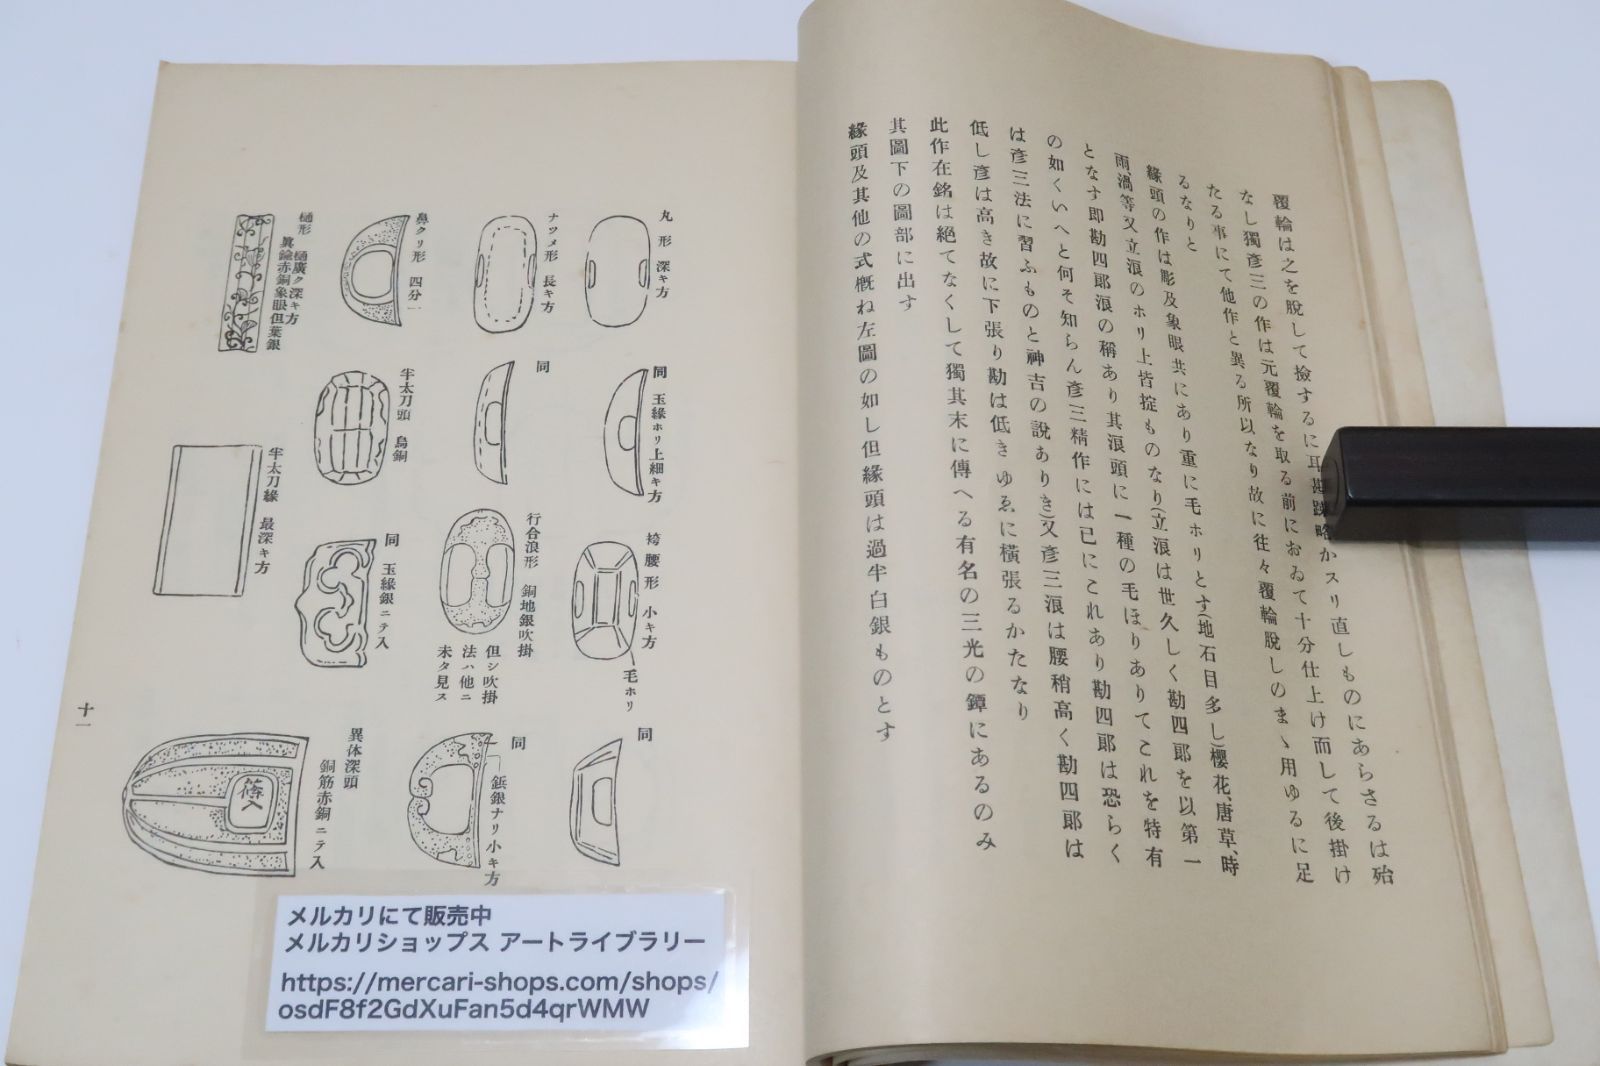 覆輪は之を脱して撿するに耳
略かスリ直しものにあらさるは殆
なし獨彦三の作は元覆輪を取る前におゐて十分仕上け而して後掛け
たる事にて他作と異る所以なり故に往々覆輪脱しのまゝ用ゆるに足
るなりと
緣頭の作は彫及象眼共にあり重に毛ホリとす(地石目多し)櫻花、唐草、時
雨、渦等又立浪のホリ上皆掟ものなり(立浪は世久しく勘四郎を以第一
となす即勘四郎浪の稱あり其浪頭に一種の毛ほりありてこれを特有
の如くいへと何そ知らん彦三精作には已にこれあり勘四郎は恐らく
は彦三法に習ふものと神吉の說ありき)又彦三浪は腰稍高く勘四郎は
低し彦は高き故に下張り勘は低きゆゑに橫張るかたなり
此作在銘は絕てなくして獨其末に傳へる有名の三光の鐔にあるのみ
其圖下の圖部に出す
緣頭及其他の式槪ね左圖の如し但緣頭は過半白銀ものとす
丸形 深キ方
ナツメ形 長キ方
鼻クリ形 四分一
樋形 樋廣ク深キ方
眞鍮赤銅象眼但葉銀
同 玉緣ホリ上細キ方
同
半太刀頭 烏銅
半太刀緣 最深キ方
袴腰形 小キ方
毛ホリ
行合浪形 銅地銀吹掛
但シ吹掛
法ハ他ニ
未タ見ス
同 玉緣銀ニテ入
同
同 鋲銀ナリ小キ方
異体深頭
銅筋赤銅ニテ入
篠入
十一
メルカリにて販売中
メルカリショップス アートライブラリー
https://mercari-shops.com/shops/
osdF8f2GdXuFan5d4qrWMW